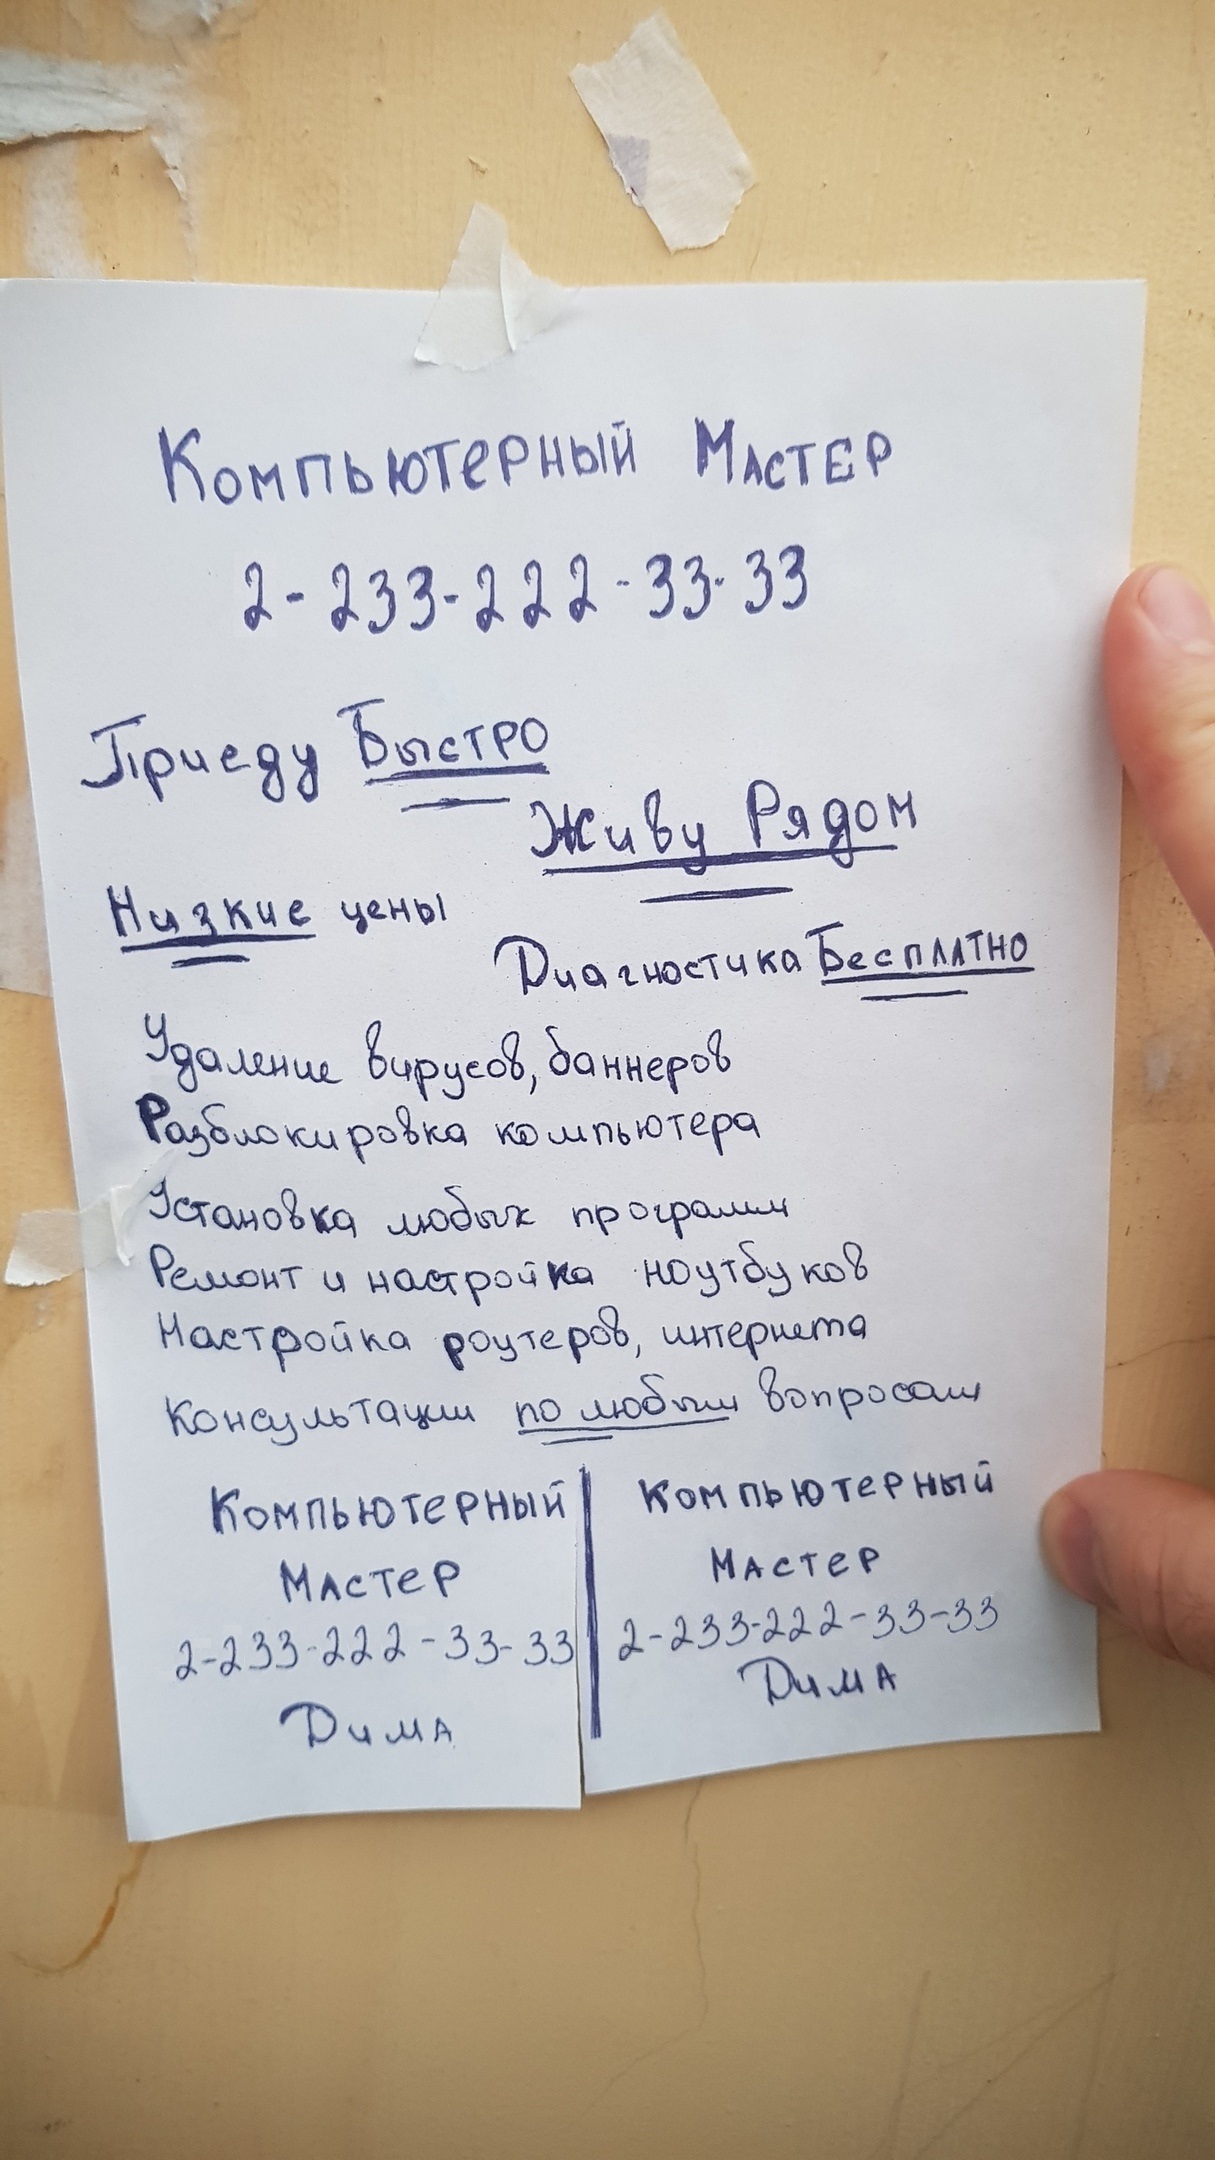 Компьютерный Мастер
2-233-222-33-33
Приеду Быстро
Живу Рядом
Низкие цены
Диагностика Бесплатно
Удаление вирусов, баннеров
Разблокировка компьютера
Установка любых программ
Ремонт и настройка ноутбуков
Настройка роутеров, интернета
Консультации по любым вопросам
Компьютерный
Мастер
2-233-222-33-33
Дима
Компьютерный
Мастер
2-233-222-33-33
Дима